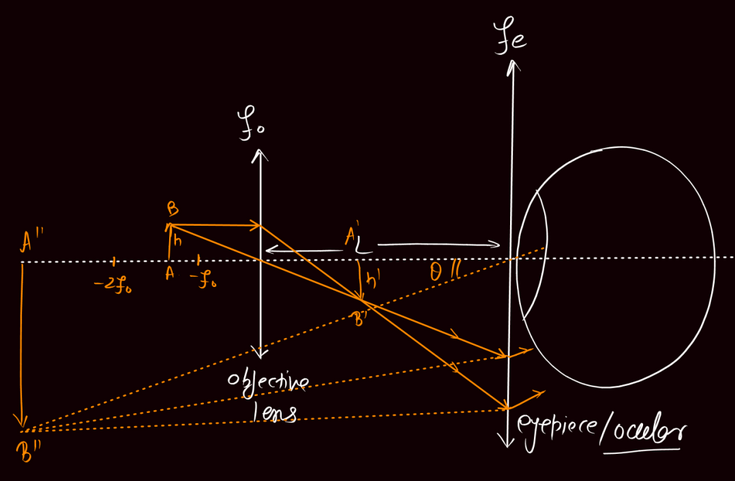 fe
fo
B
A"
A'
L
h
-2fo
A
-fo
h'
θ"
B'
objective
lens
eyepiece/ocular
B"